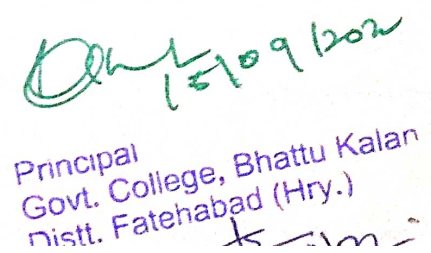 15/09/202
Principal
Govt. College, Bhattu Kalan
Distt. Fatehabad (Hry.)